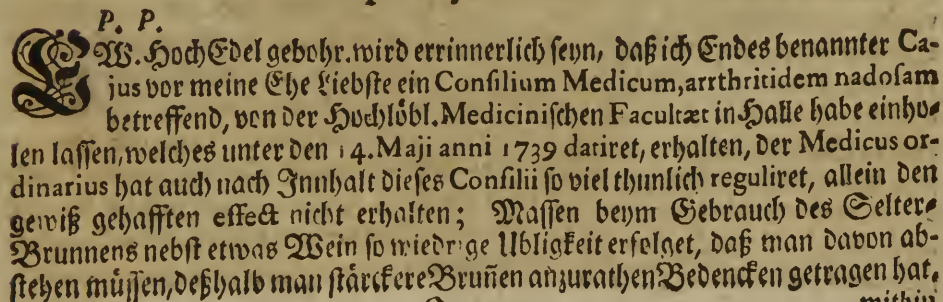 P. P.
EW. HochEdel gebohr. wird errinnerlich seyn, daß ich Endes benannter Ca-
jus vor meine Ehe Liebste ein Consilium Medicum, arrthritidem nadosam
betreffend, von der Hochlöbl. Medicinischen Facultæt in Halle habe einho-
len lassen, welches unter den 14. Maji anni 1739 datiret, erhalten, der Medicus or-
dinarius hat auch nach Innhalt dieses Consilii so viel thunlich reguliret, allein den
gewiß gehafften effect nicht erhalten; Massen beym Gebrauch des Selter-
Brunnens nebst etwas Wein so wiedrige Ubligkeit erfolget, daß man davon ab-
stehen müssen, deßhalb man stärckere Bruñen anzurathen Bedencken getragen hat,
mithin